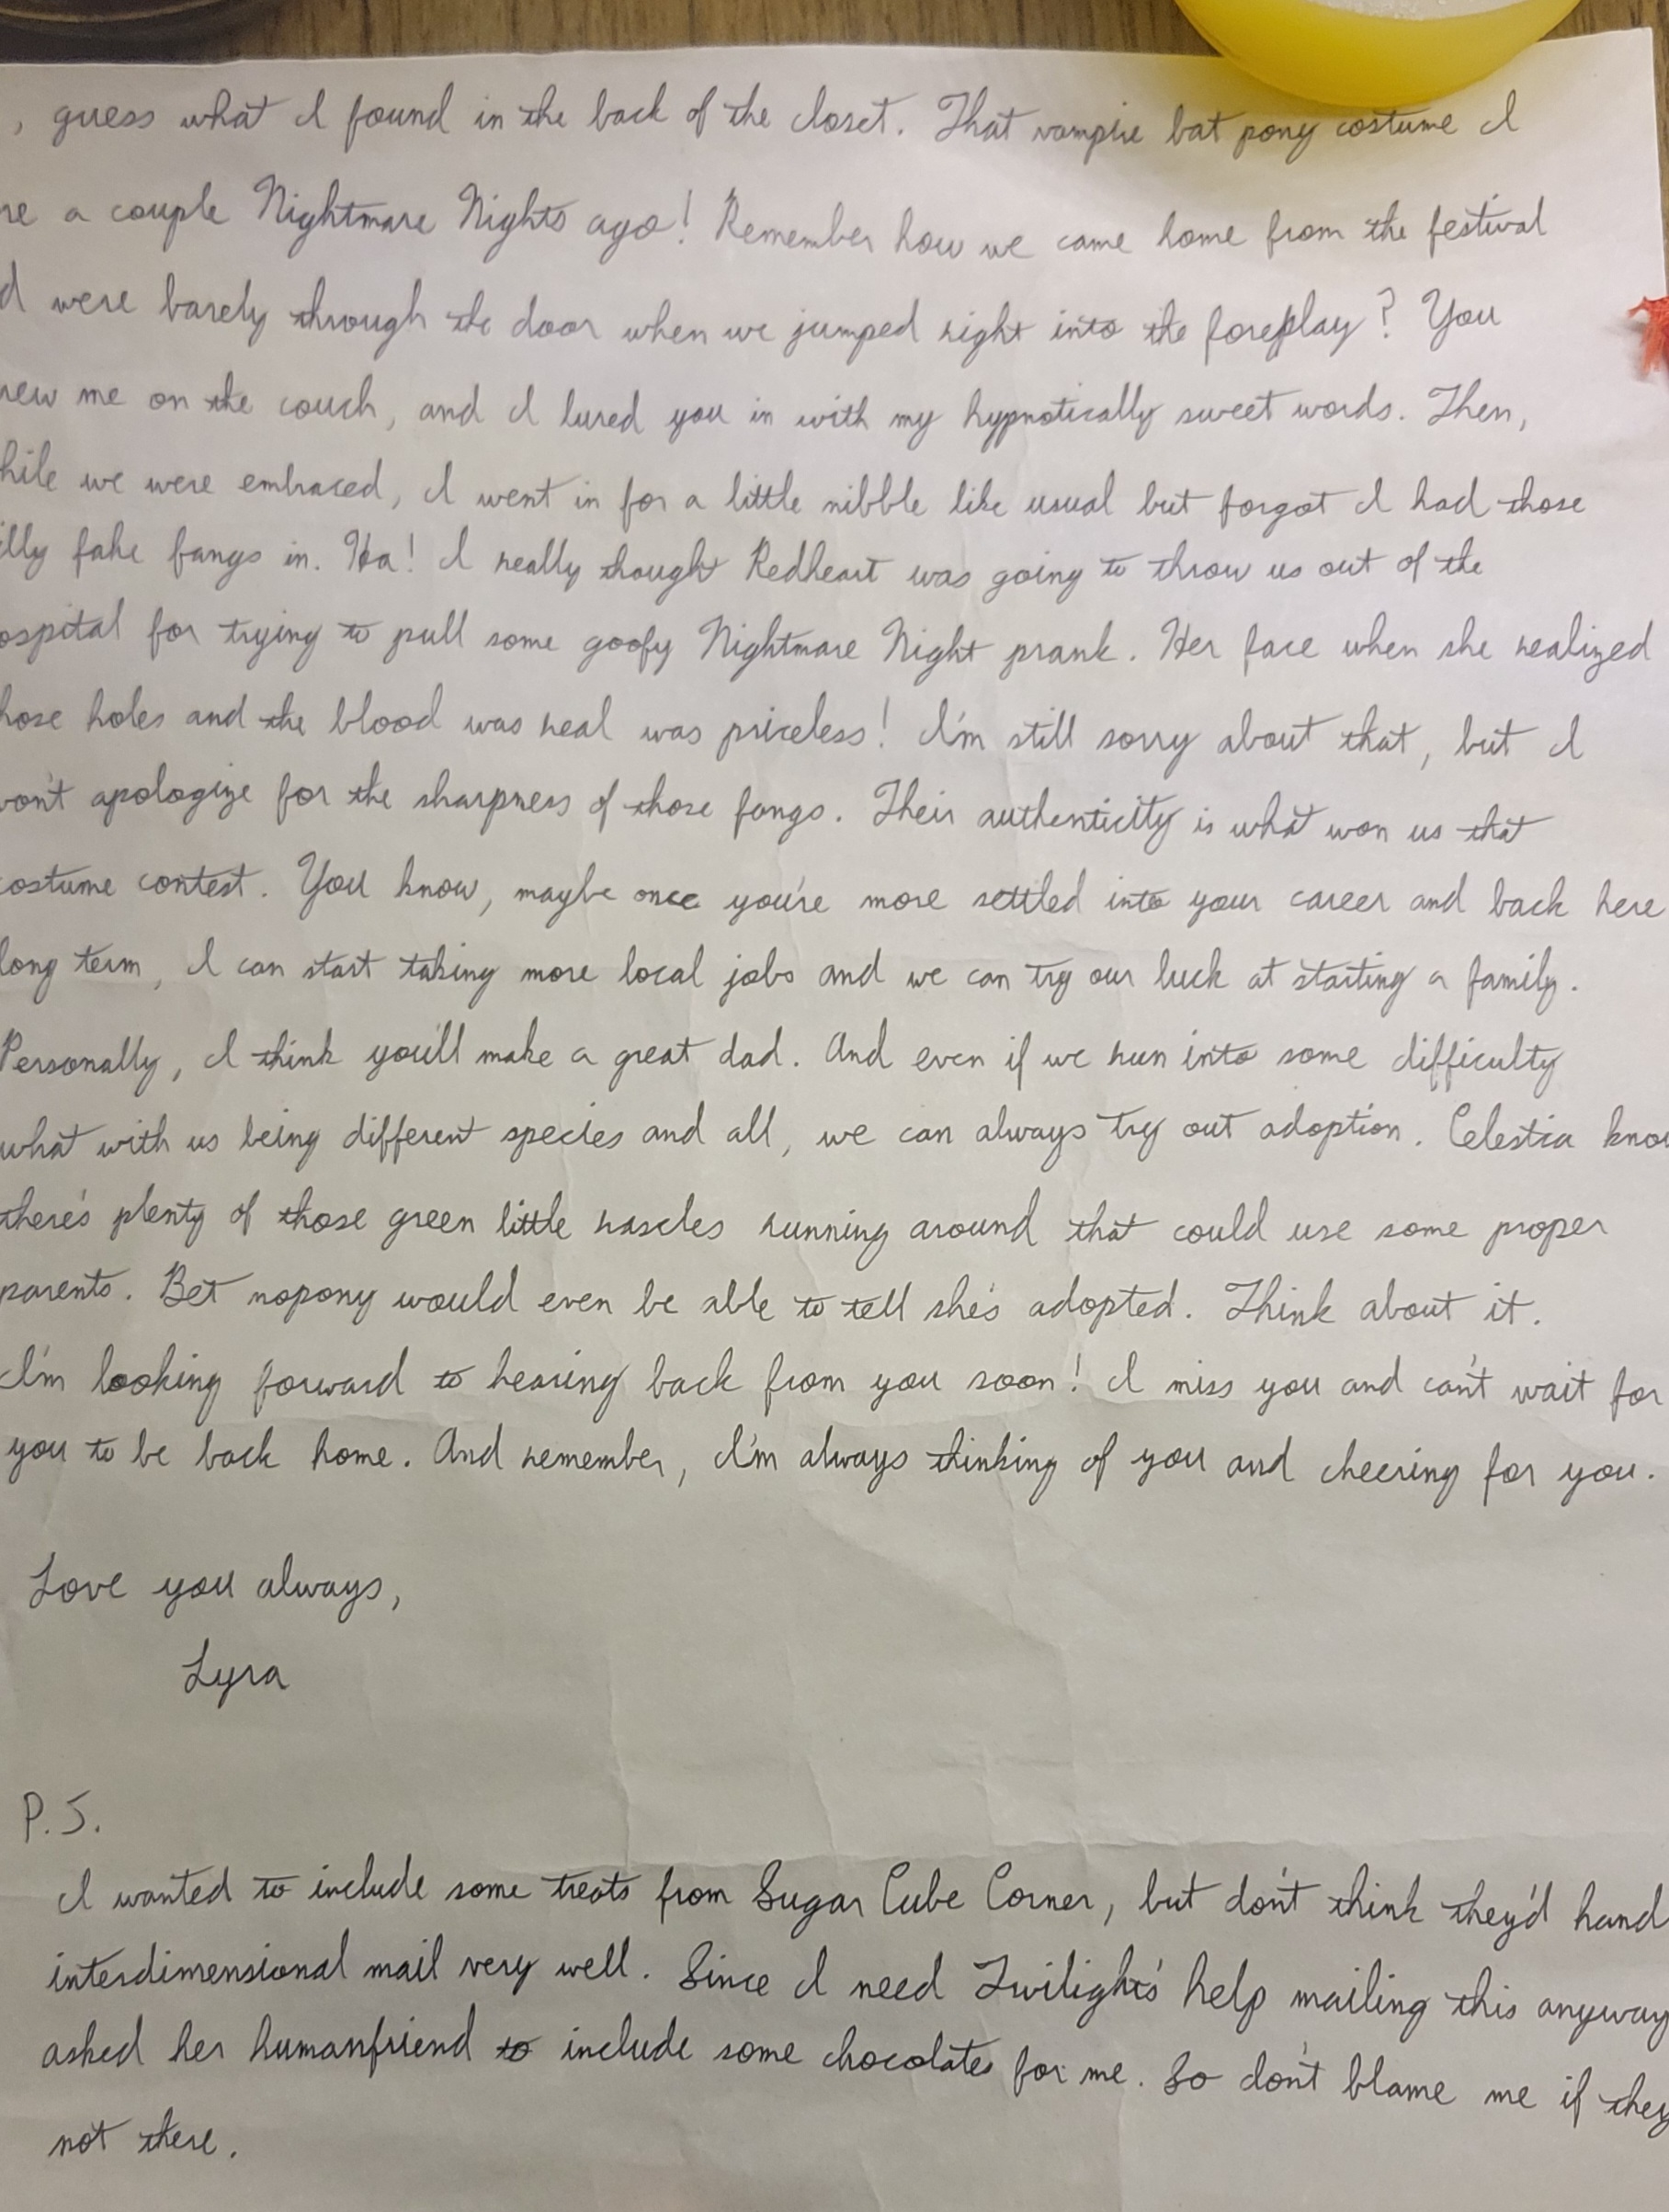 , guess what I found in the back of the closet. That vampire bat pony costume I
re a couple Nightmare Nights ago! Remember how we came home from the festival
d were barely through the door when we jumped right into the foreplay? You
rew me on the couch, and I lured you in with my hypnotically sweet words. Then,
hile we were embraced, I went in for a little nibble like usual but forgot I had those
illy fake fangs in. Ha! I really thought Redheart was going to throw us out of the
ospital for trying to pull some goofy Nightmare Night prank. Her face when she realized
hose holes and the blood was real was priceless! I'm still sorry about that, but I
won't apologize for the sharpness of those fangs. Their authenticity is what won us that
costume contest. You know, maybe once you're more settled into your career and back here
long term, I can start taking more local jobs and we can try our luck at starting a family.
Personally, I think you'll make a great dad. And even if we run into some difficulty
what with us being different species and all, we can always try out adoption. Celestia know
there's plenty of those green little rascles running around that could use some proper
parents. Bet nopony would even be able to tell she's adopted. Think about it.
I'm looking forward to hearing back from you soon! I miss you and can't wait for
you to be back home. And remember, I'm always thinking of you and cheering for you.
Love you always,
Lyra
P.S.
I wanted to include some treats from Sugar Cube Corner, but don't think they'd hand
interdimensional mail very well. Since I need Twilight's help mailing this anyway
asked her humanfriend to include some chocolates for me. So don't blame me if they
not there.